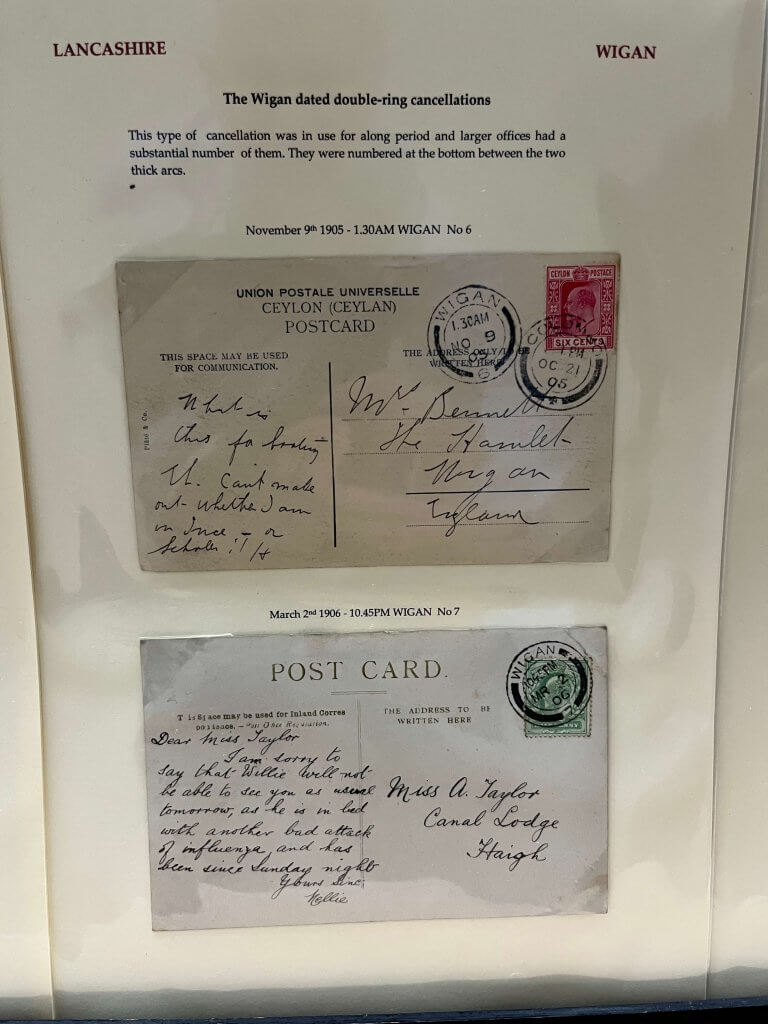 LANCASHIRE WIGAN
The Wigan dated double-ring cancellations
This type of cancellation was in use for along period and larger offices had a
substantial number of them. They were numbered at the bottom between the two
thick arcs.
November 9th 1905 - 1.30AM WIGAN No 6
UNION POSTALE UNIVERSELLE
CEYLON (CEYLAN)
POSTCARD
THIS SPACE MAY BE USED
FOR COMMUNICATION.
THE ADDRESS ONLY
WRITTEN HERE
WIGAN
1.30AM
NO 9
05
6
CEYLON POSTAGE
SIX CENTS
COLOMBO
1 PM
OC 21
05
Plâté & Co.
What is
this for
Ut. Can't make
out whether I am
in Ince - or
Scholes !! H
Mrs Bennett
The Hamlet
Wigan
England
March 2nd 1906 - 10.45PM WIGAN No 7
POST CARD.
T is S ace may be used for Inland Corres
THE ADDRESS TO BE
WRITTEN HERE
WIGAN
10.45PM
MR 2
06
Dear Miss Taylor
I am sorry to
say that Willie will not
be able to see you as usual
tomorrow, as he is in bed
with another bad attack
of influenza, and has
been since Sunday night
Yours Sinc;
Nellie
Miss A. Taylor
Canal Lodge
Haigh